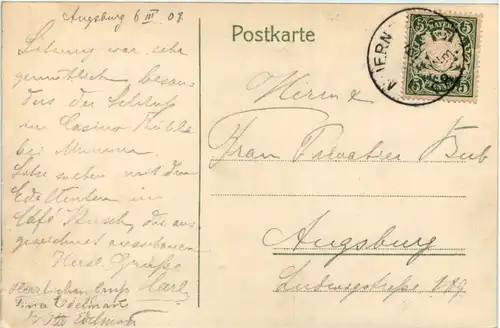 Augsburg 6 III 07.
Sitzung war sehr
gemütlich beson-
ders der Schluss
im Casino Kühle
bei Mumm.
Sitze soeben mit den
Edeltinten im
Café Busch, die aus-
gezeichnet ausschauen
Herzl. Grüße
Carl
Herzlichen Gruß
Tina Edelmann
Edelmann
Postkarte
BAYERN
5 5
Herrn &
Frau Privatier Bub
Augsburg
Ludwigstraße